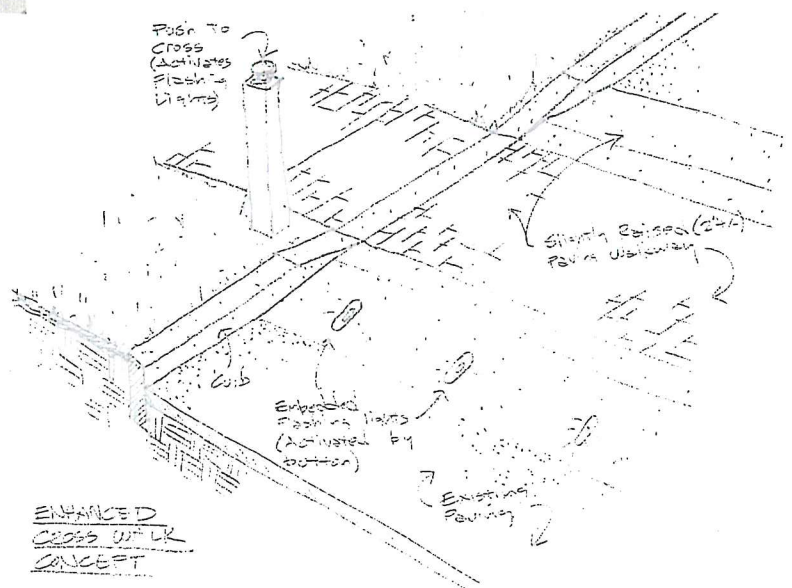 Push To
Cross
(Activates
Flashing
Lights)
Slightly Raised (2"+/-)
Paving Walkway
Curb
Embedded
Flashing lights
(Activated by
button)
Existing
Paving
ENHANCED
CROSS WALK
CONCEPT